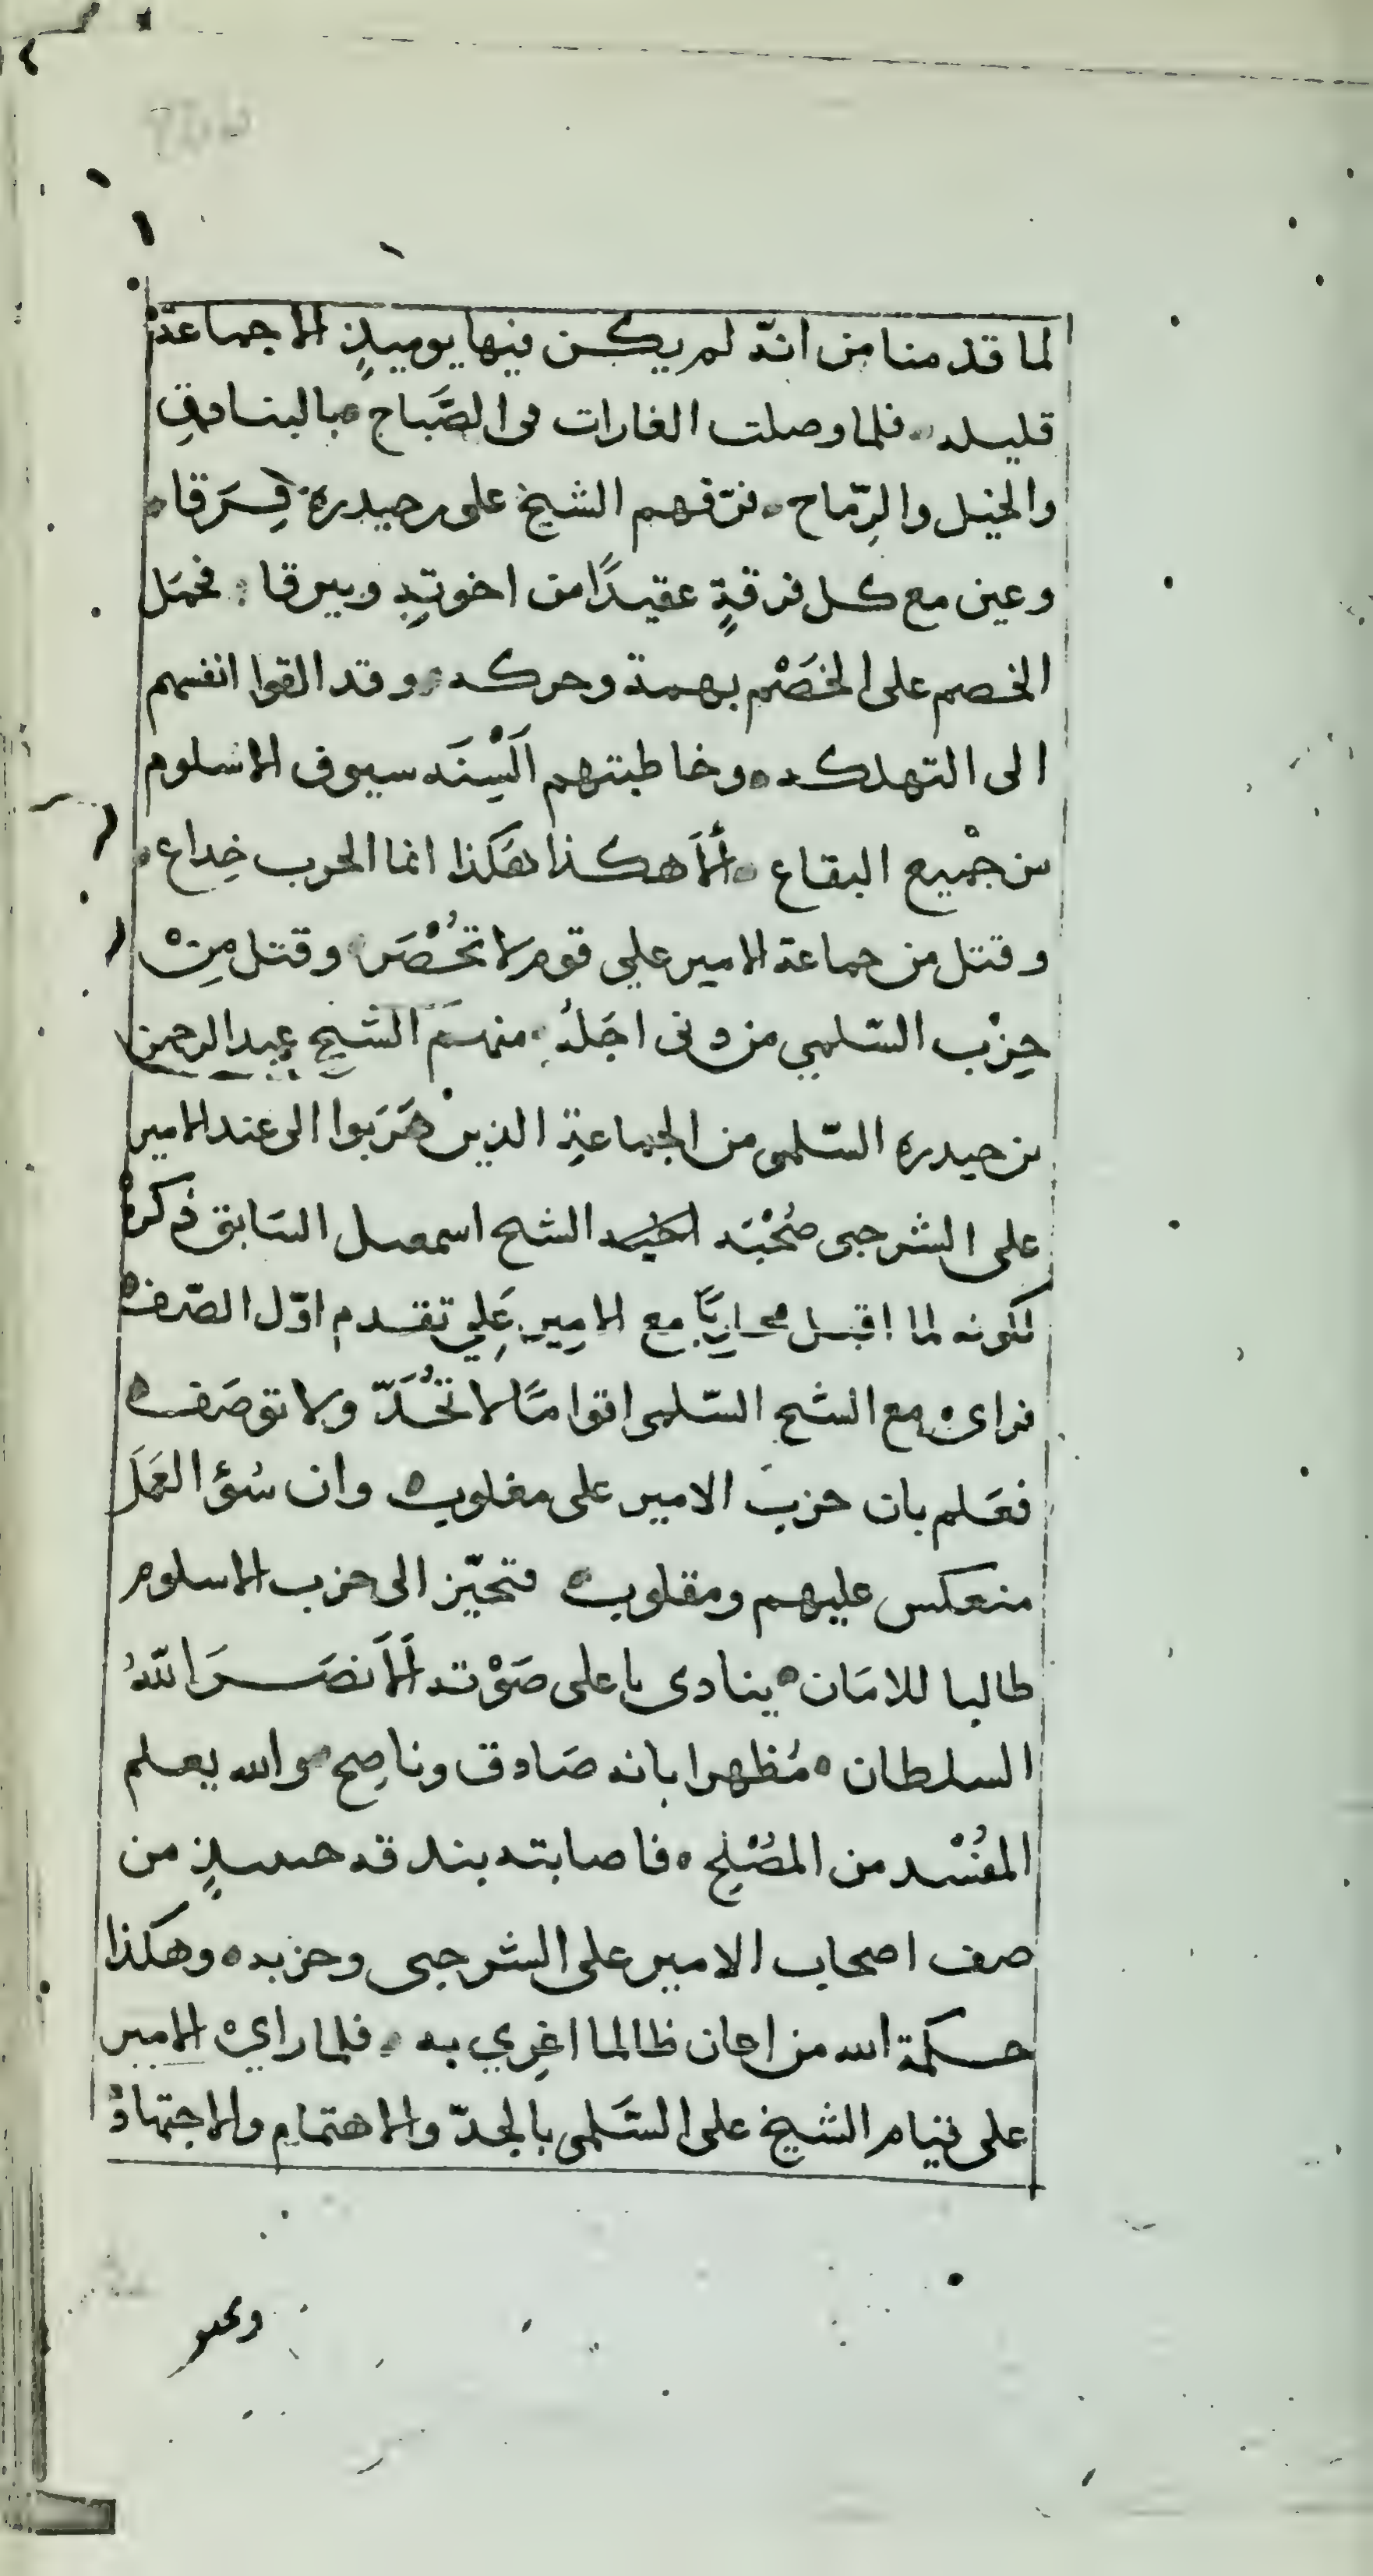 لما قدمنا من انّه لم يكن فيها يوميذٍ الا جماعة
قليله • فلما وصلت الغارات في الصَّباح • بالبنادقِ
والخيل والرِّماح • فرّقهم الشيخ على حيدره فِرَقا •
وعين مع كل فرقةٍ عقيدًا من اخوتهِ وبيرقا • فحمَل
الخصم على الخَصْم بهمة وحركه • وقد القوا انفسهم
الى التهلكه • وخاطبتهم اَلْسِنَه سيوف الاسلوم
من جْميع البقاع • أَلاَ هكذا هَكذا انما الحرب خِداع •
وقتل من جماعة الامير علي قوم لا تُحْصَر • وقتل مِن
حِزْب السّلمي من دنى اجَلهُ • منهم الشيخ عبد الرحمن
بن حيدره السّلمى من الجماعةِ الذين هَرَبوا الى عند الامير
على الشرجبى صُحْبَه الشيخ اسمعيل السَابق ذكره
لكونه لما اقبل محاربًا مع الامِير عَلِي تقدم اوّل الصّف •
فراى مع الشيخ السّلمى اقوامًا لا تُحَدّ ولا توصَف •
فعَلم بان حزبَ الامير على مغلوب • وان سُؤ العَمَل
منعكس عليهم ومقلوب • فتحيّز الى حزب الاسلوم
طالبا للامَان • ينادى باعلى صَوْته أَلاَ نصَرَ اللّهُ
السلطان • مُظهرا بانه صَادق وناصِح • والله يعلم
المفُسْد من المصُلْح • فاصابته بندقه حينيذٍ من
صف اصحاب الامير على الشرجبى وحزبه • وهكذا
حكمة الله من اعان ظالما اغرِي به • فلما راي الامير
على قيام الشيخ على السَّلمى بالجدّ والاهتمامِ والاجتهاد